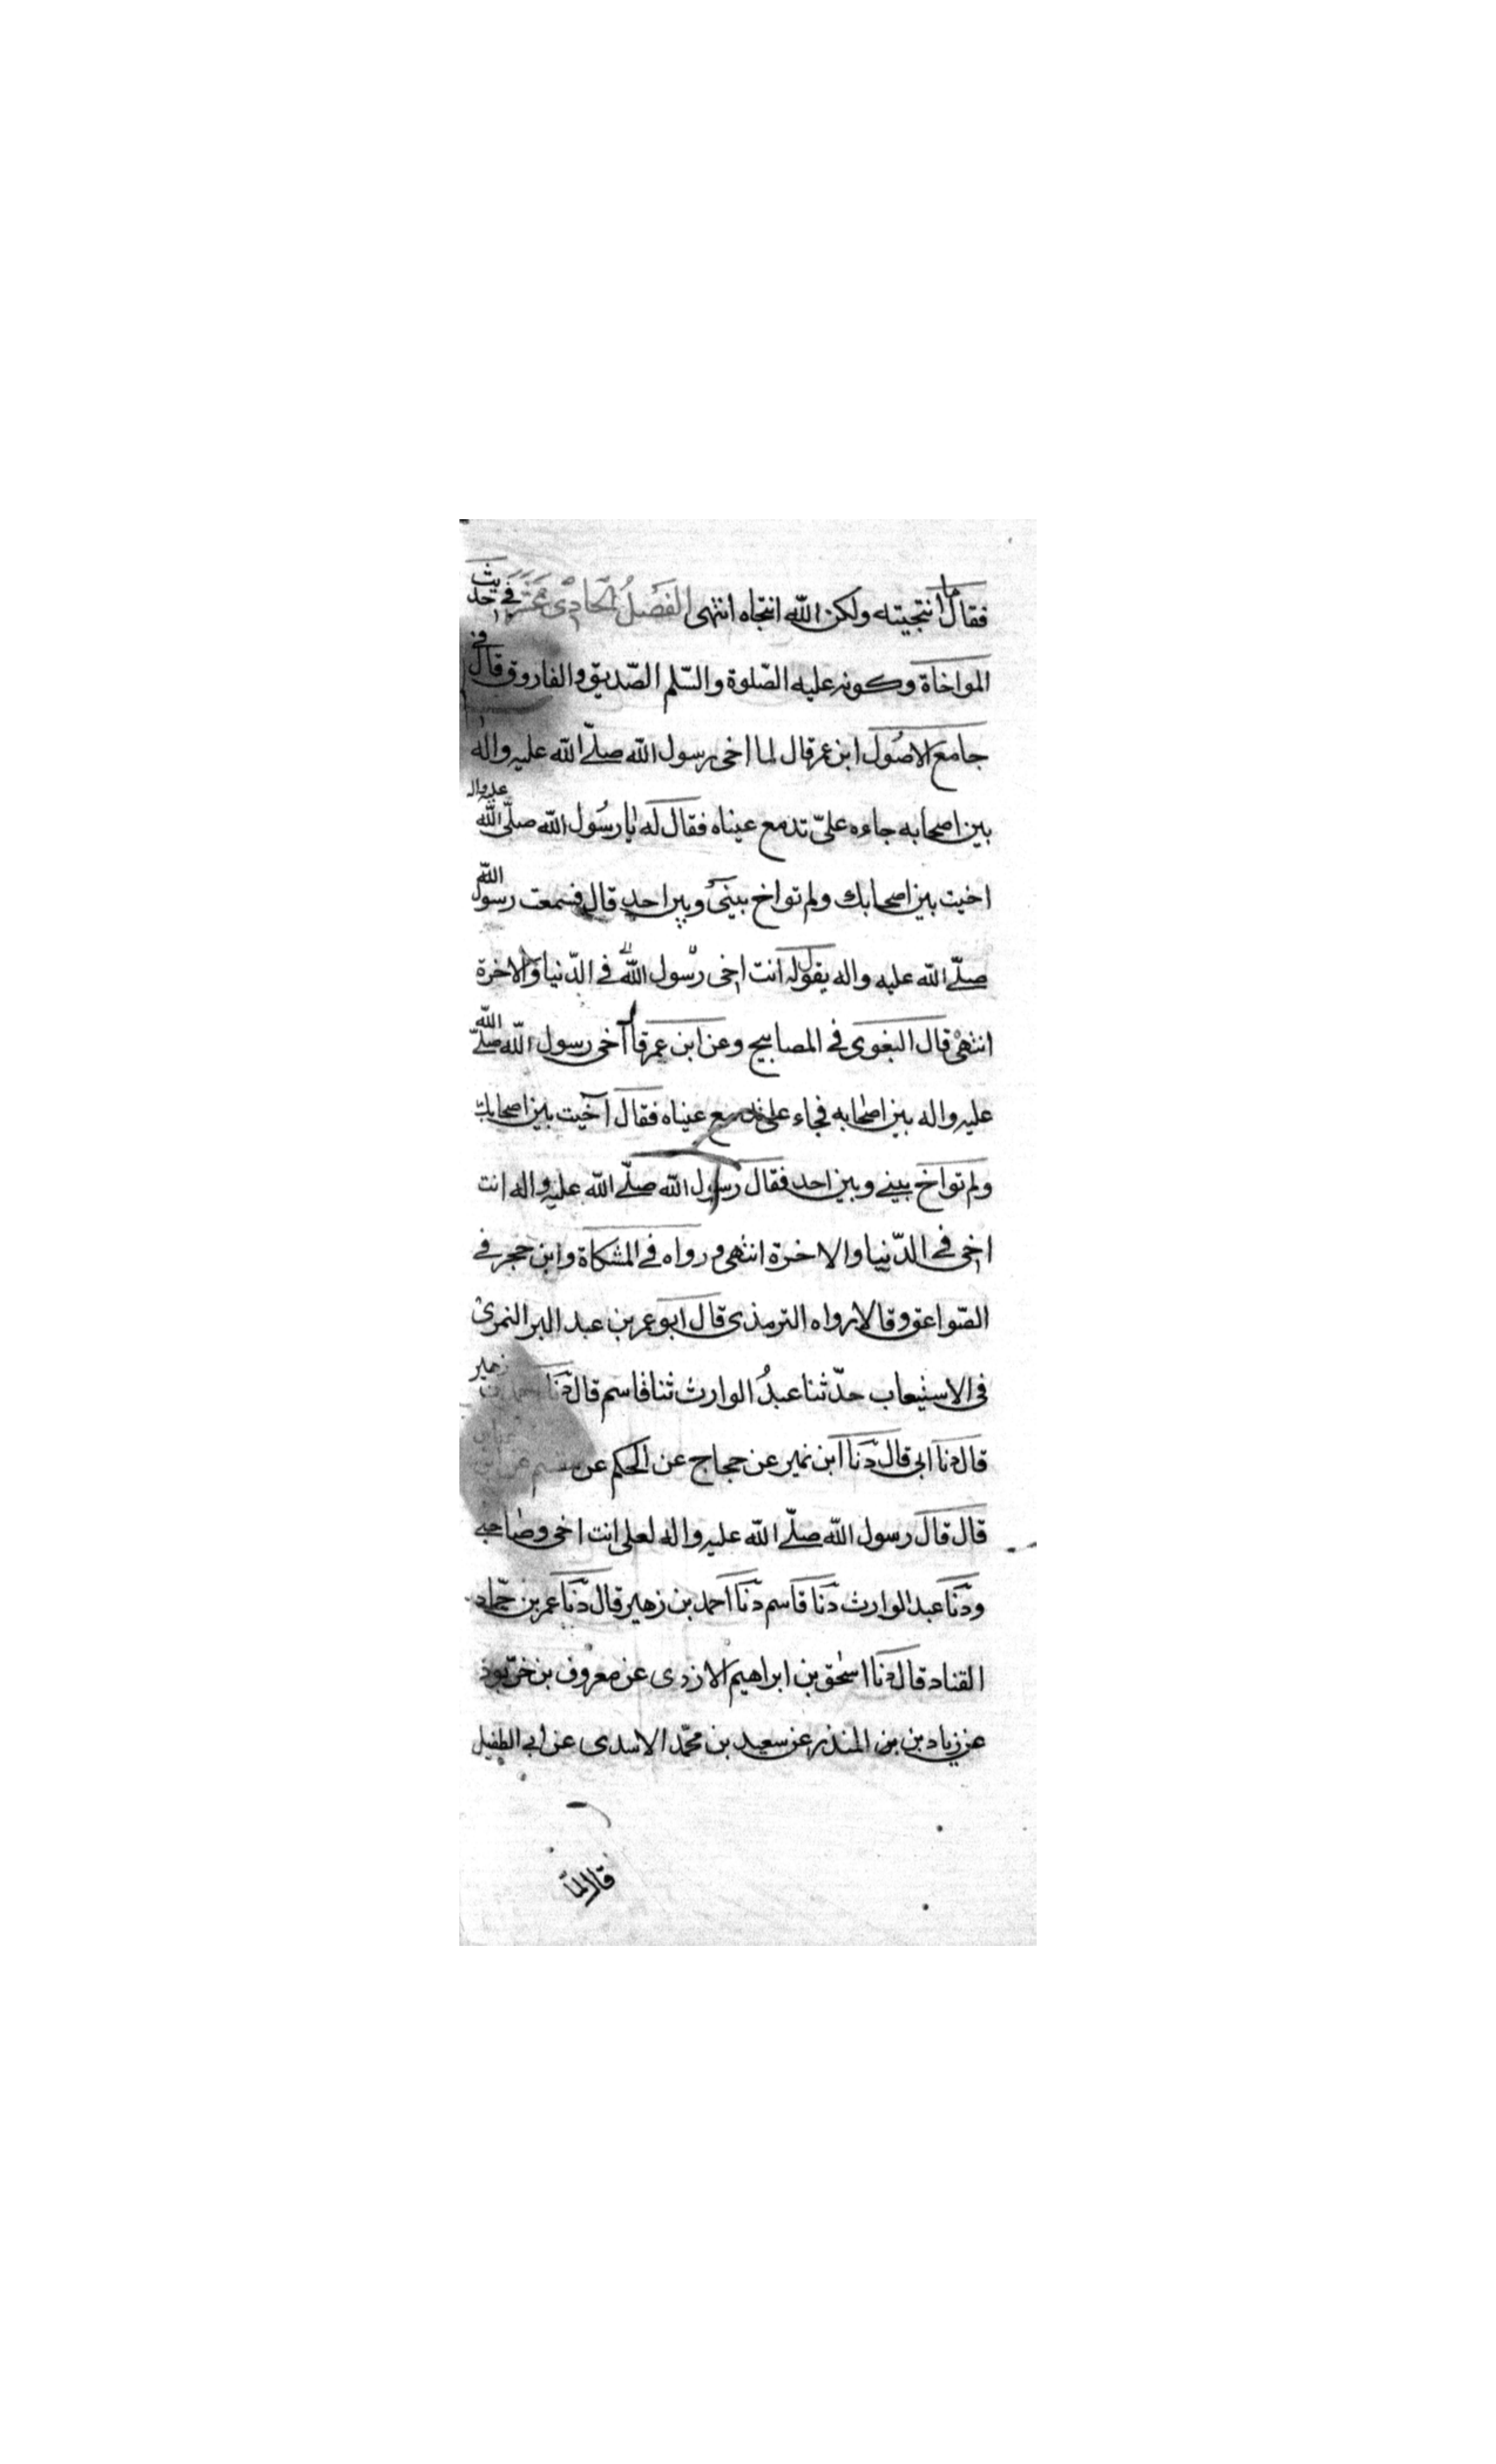 فقال ما انتجيته ولكن الله انتجاه انتهى الفصل الحادى عشر فى حديث
المواخاة وكونه عليه الصّلوة والسّلم الصّديق والفاروق قال فى
جامع الاصول ابن عمر قال لما اخى رسول الله صلّى الله عليه واله
بين اصحابه جاءه علىّ تدمع عيناه فقال له يا رسول الله صلّى الله عليه واله
اخيت بين اصحابك ولم تواخ بينى وبين احد قال فسمعت رسول الله
صلّى الله عليه واله يقول له انت اخى رسول الله فى الدّنيا والاخرة
انتهى قال البغوى فى المصابيح وعن ابن عمر قال آخى رسول الله صلّى الله
عليه واله بين اصحابه فجاء على تدمع عيناه فقال آخيت بين اصحابك
ولم تواخ بينى وبين احد فقال رسول الله صلّى الله عليه واله انت
اخى فى الدّنيا والاخرة انتهى ورواه فى المشكاة وابن حجر فى
الصّواعق وقالا رواه الترمذى قال ابو عمر بن عبد البر النمرى
فى الاستيعاب حدّثنا عبدُ الوارث ثنا قاسم قال دثنا احمد بن زهير
قال دثنا ابى قال دثنا ابن نمير عن حجاج عن الحكم عن مقسم عن ابن عباس
قال قال رسول الله صلّى الله عليه واله لعلى انت اخى وصاحبى
ودثنا عبد الوارث دثنا قاسم دثنا احمد بن زهير قال دثنا عمر بن حمّاد
القناد قال دثنا اسحٰق بن ابراهيم الازدى عن معروف بن خرّبوذ
عن زياد بن بن المنذر عن سعيد بن محمّد الاسدى عن ابى الطفيل
قال لمّا